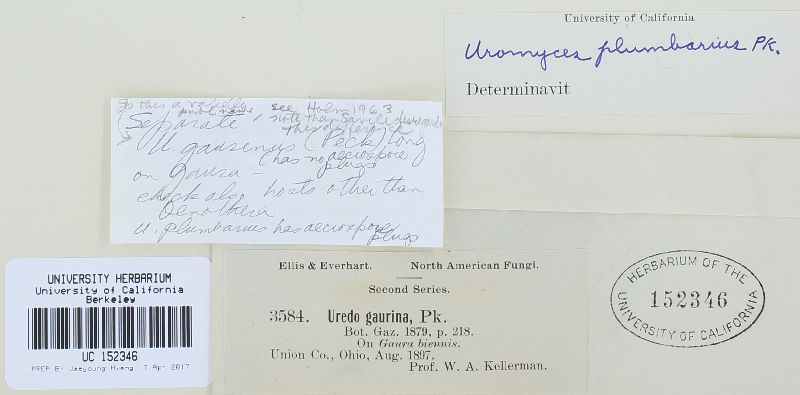 University of California
Uromyces plumbarius PK.
Determinavit
Is this a
see Holm 1963
Separate note that Savile disregards
this difference
U. gaurinus (Peck) Long
(has no aeciospore
plugs
on Gaura –
check also hosts other than
Oenothera
U. plumbarius has aeciospore
plugs
Ellis & Everhart. North American Fungi.
Second Series.
3584. Uredo gaurina, Pk.
Bot. Gaz. 1879, p. 218.
On Gaura biennis.
Union Co., Ohio, Aug. 1897.
Prof. W. A. Kellerman.
HERBARIUM OF THE
152346
UNIVERSITY OF CALIFORNIA
UNIVERSITY HERBARIUM
University of California
Berkeley
UC 152346
PREP BY Jaeyoung Hwang, 7 Apr 2017